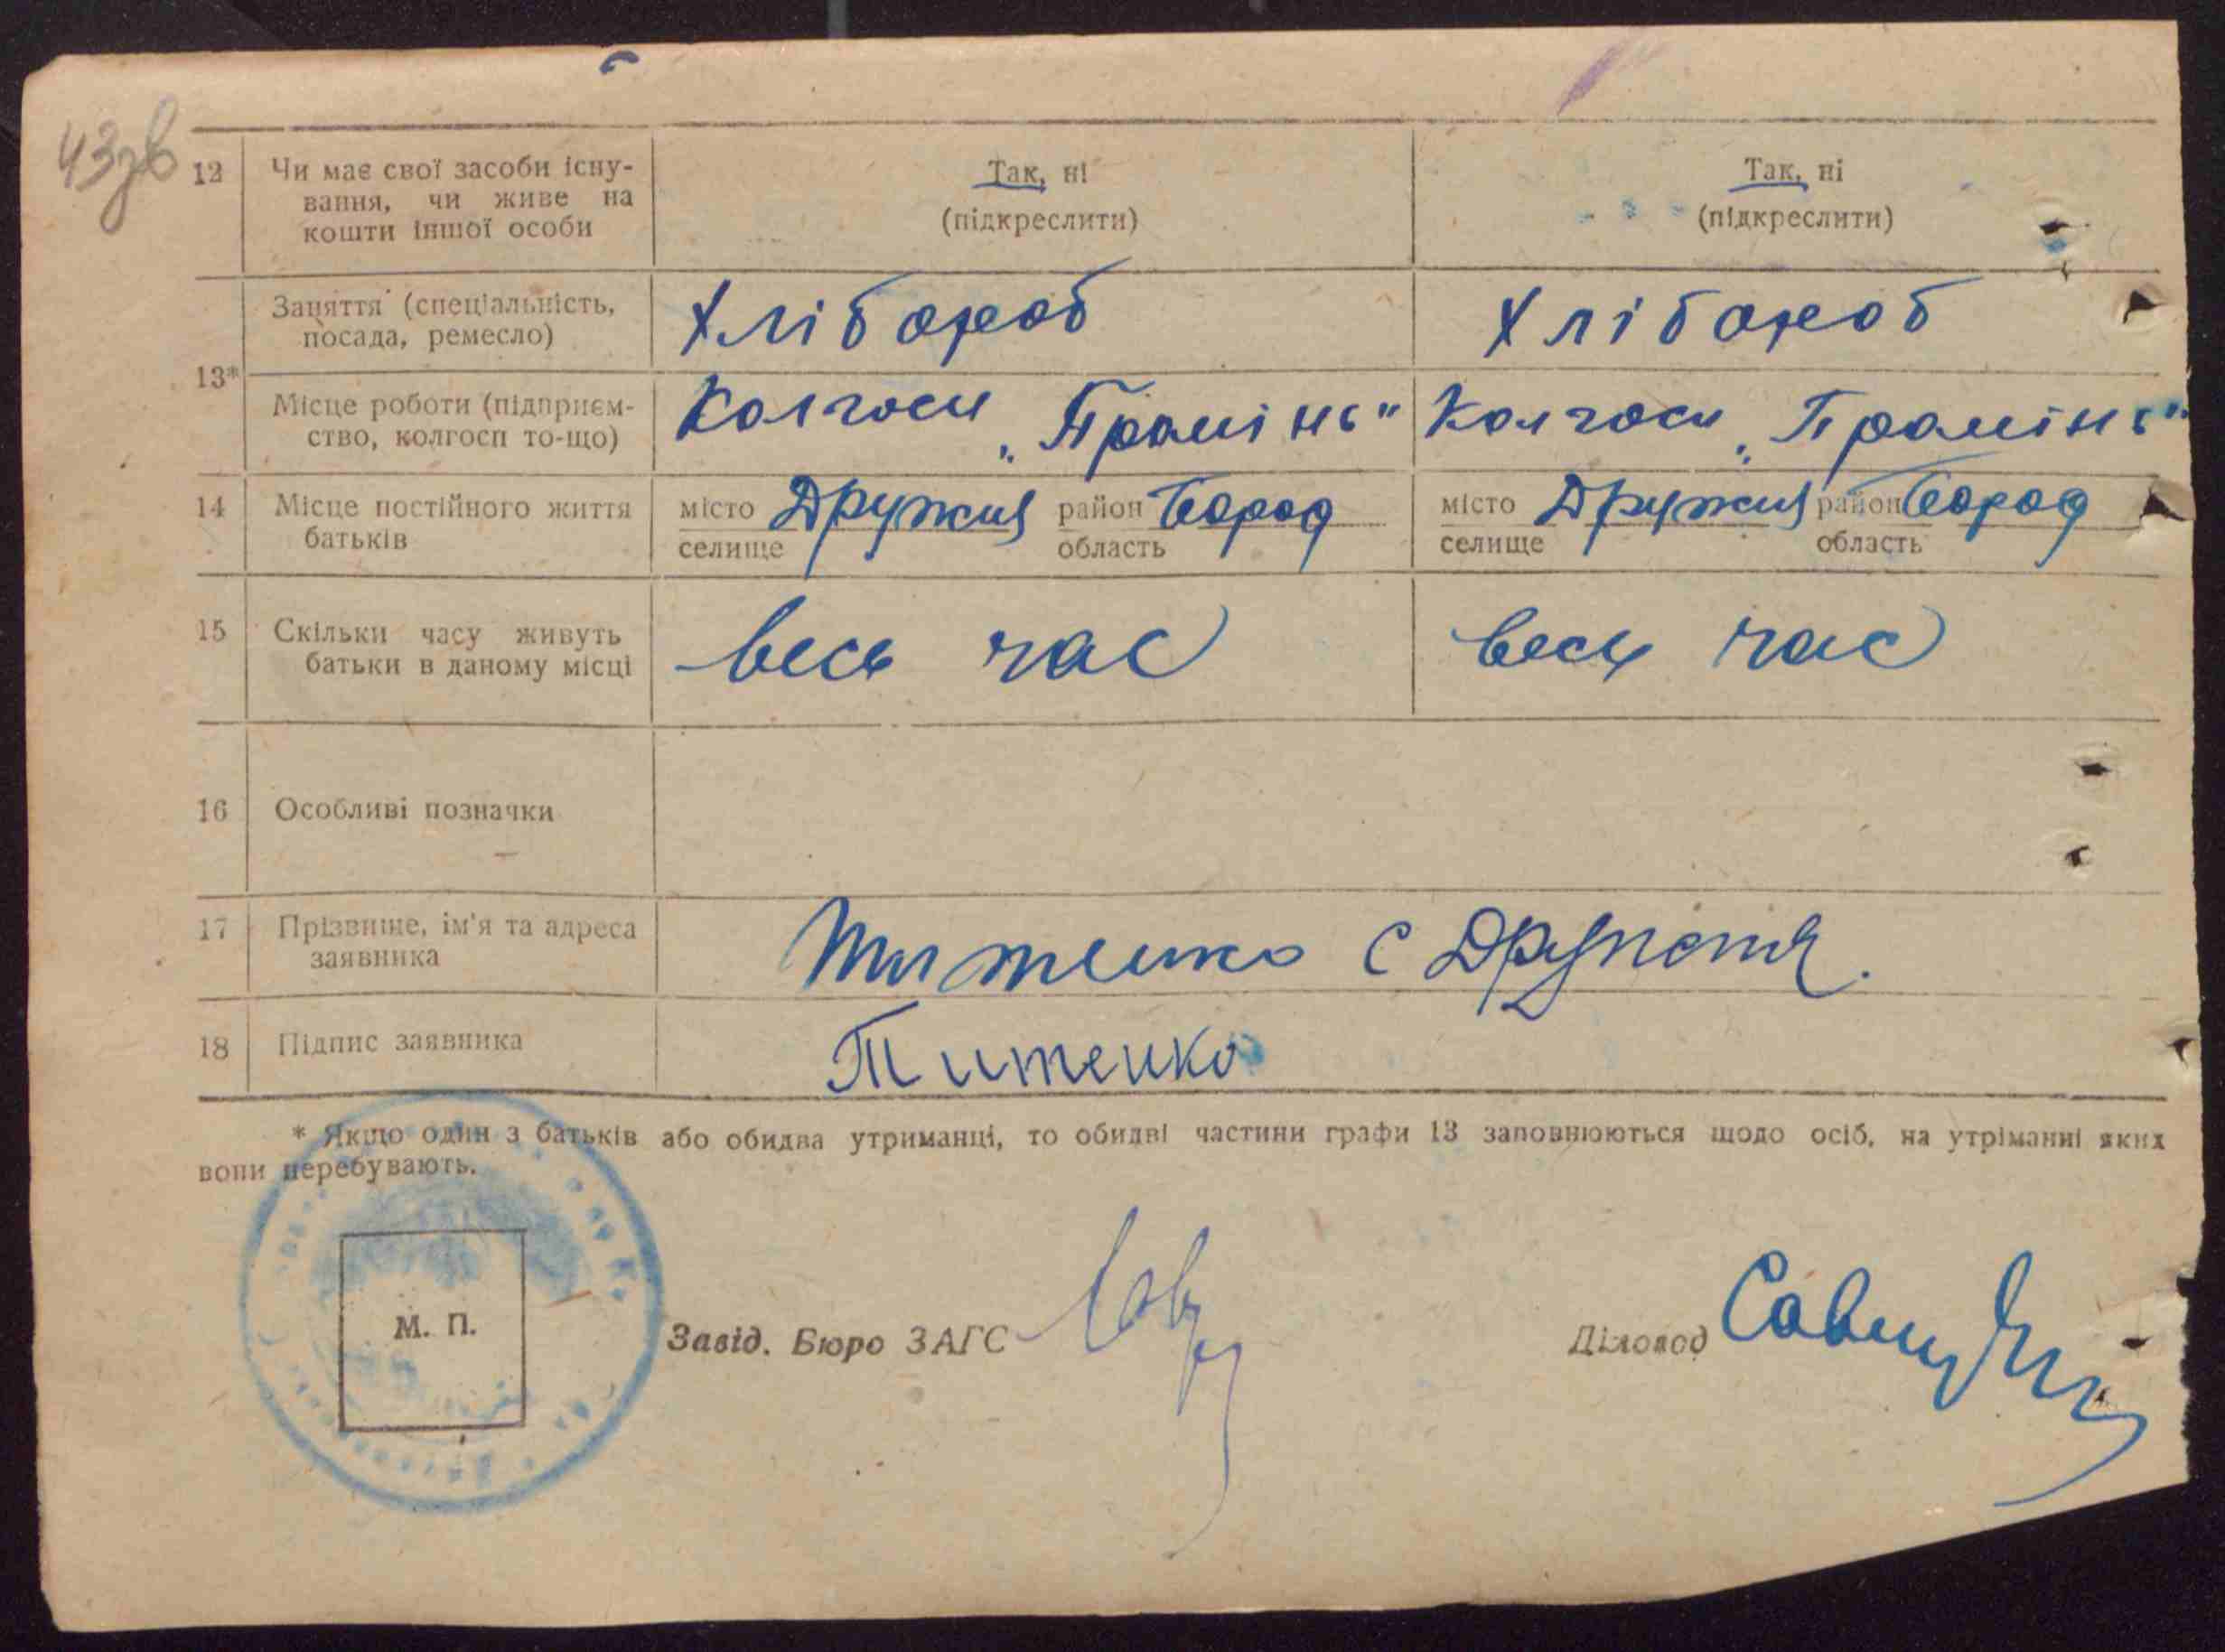 43зв
12 Чи має свої засоби існу- Так, ні Так, ні
вання, чи живе на (підкреслити) (підкреслити)
кошти іншої особи
Заняття (спеціальність, Хлібороб Хлібороб
посада, ремесло)
13*
Місце роботи (підприєм- Колгосп „Промінь" Колгосп „Промінь"
ство, колгосп то-що)
14 Місце постійного життя місто Дружня район Бород місто Дружня район Бород
батьків селище область селище область
15 Скільки часу живуть весь час весь час
батьки в даному місці
16 Особливі позначки
17 Прізвище, ім'я та адреса Титенко с Дружня.
заявника
18 Підпис заявника Титенко
* Якщо один з батьків або обидва утриманці, то обидві частини графи 13 заповнюються щодо осіб, на утріманні яких
вони перебувають.
М. П.
Завід. Бюро ЗАГС Діловод